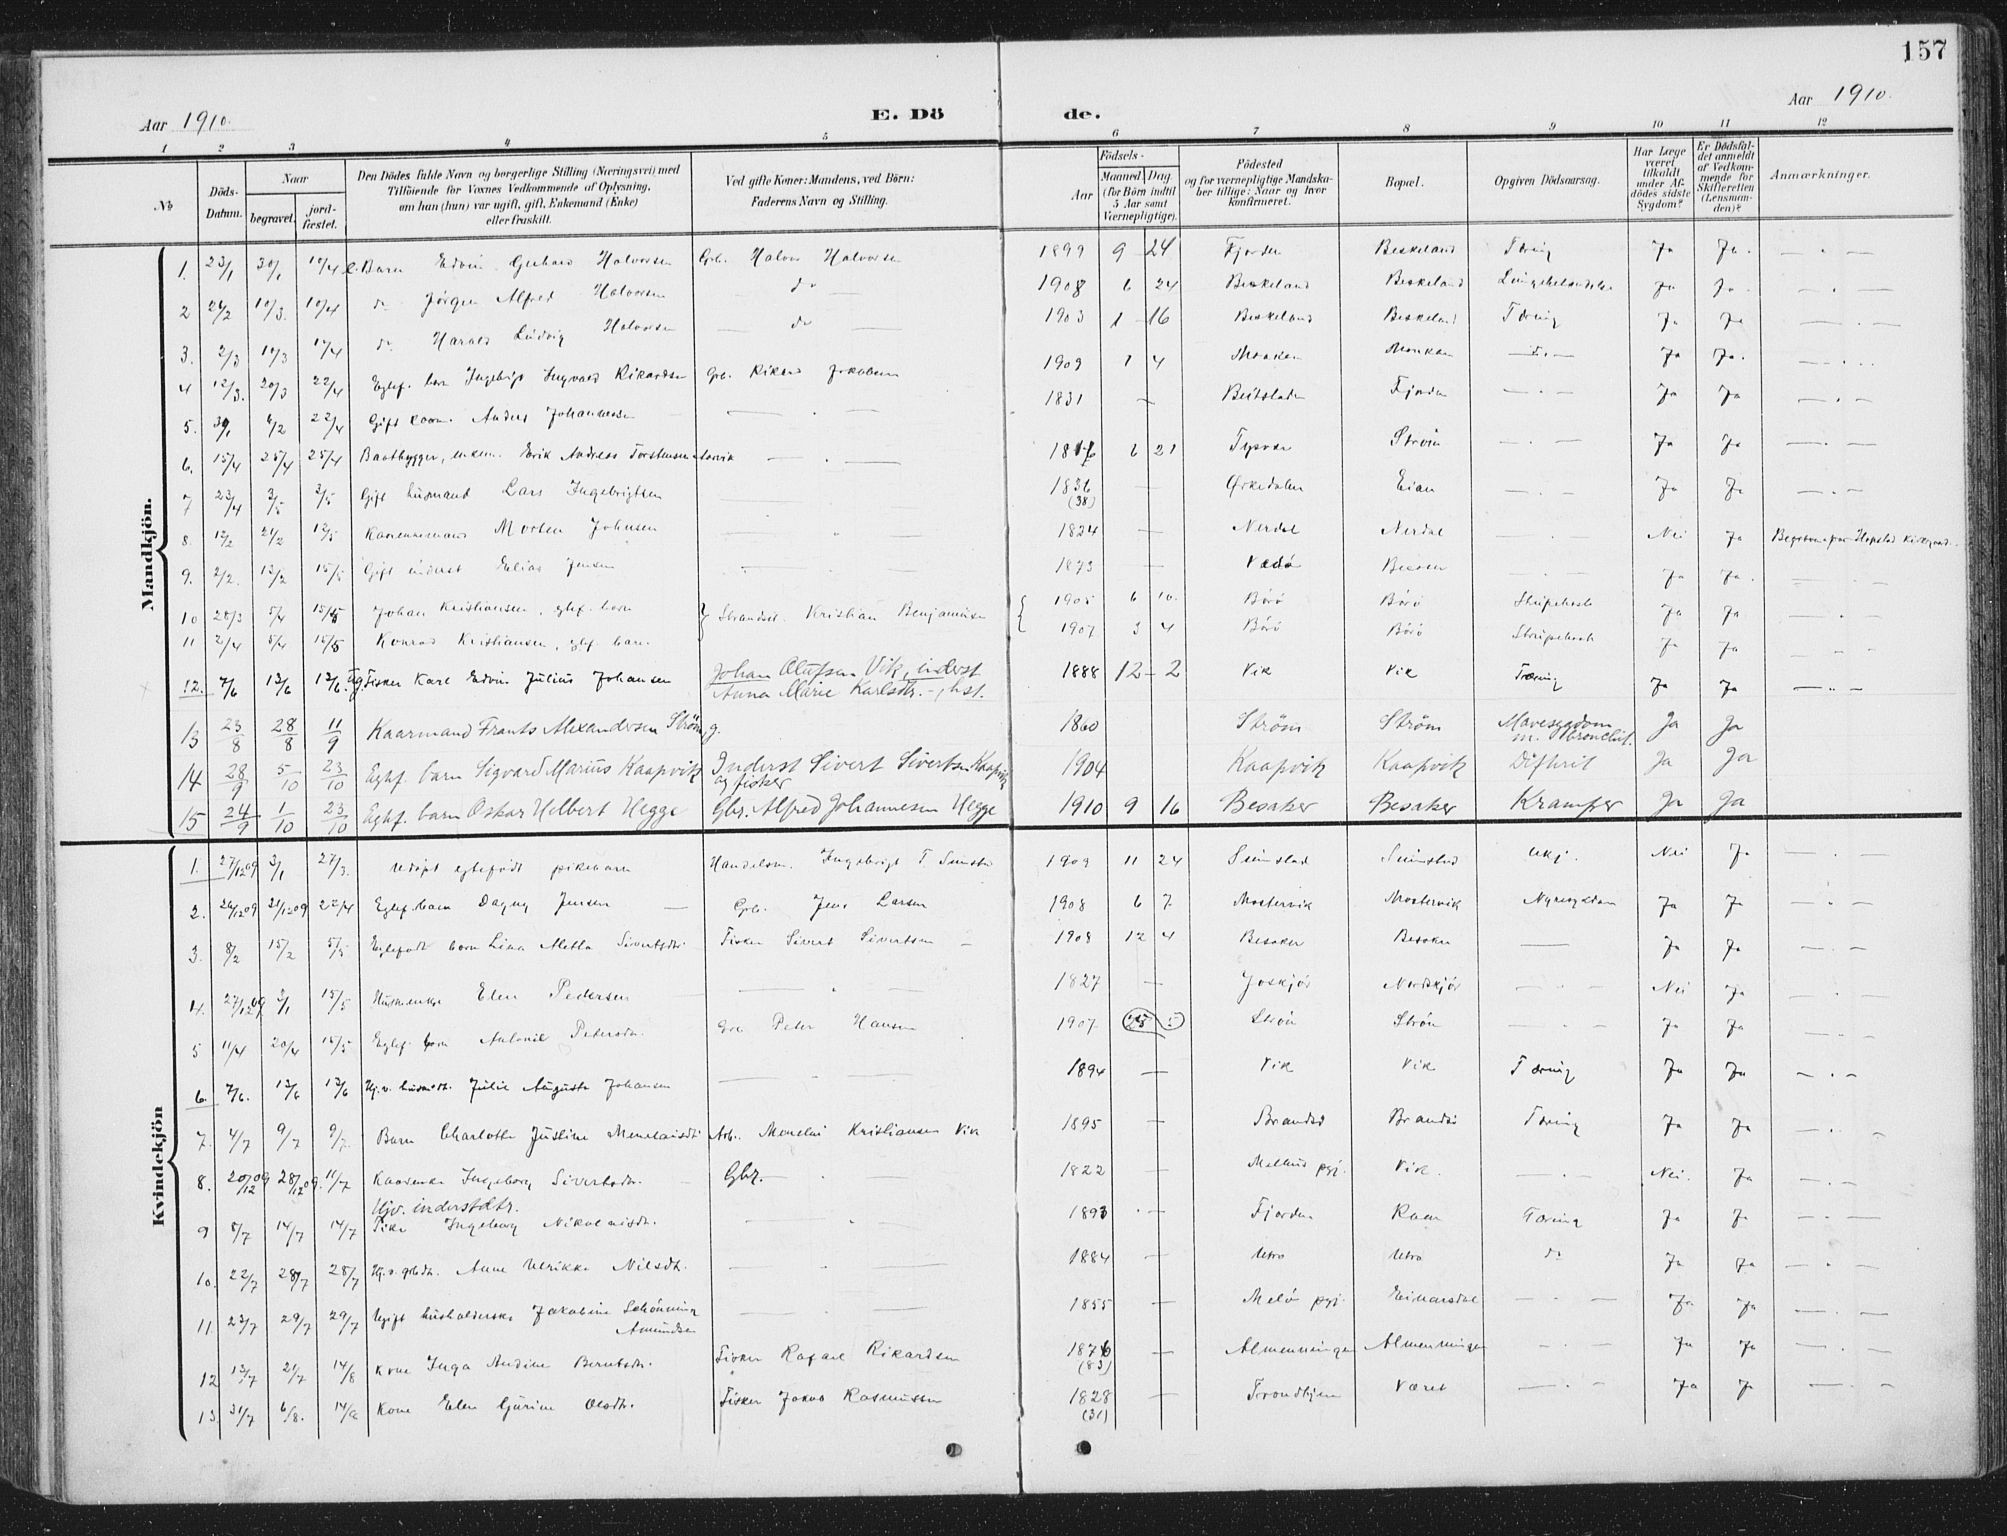 157
Aar 1910. E. Dö de. Aar 1910.
1 2 3 4 5 6 7 8 9 10 11 12
No
Döds-Datum.
Naar begravet. jord-fæstet.
Den Dödes fulde Navn og borgerlige Stilling (Næringsvei) med Tilföiende for Voxnes Vedkommende af Oplysning, om han (hun) var ugift, gift, Enkemand (Enke) eller fraskilt.
Ved gifte Koner: Mandens, ved Börn: Faderens Navn og Stilling.
Födsels- Aar Maaned Dag. (for Börn indtil 5 Aar samt Værnepligtige).
Födested og for værnepligtige Mandskaber tillige: Naar og hvor konfirmeret.
Bopæl.
Opgiven Dödsaarsag.
Har Læge været tilkaldt under Afdödes sidste Sygdom?
Er Dödsfaldet anmeldt af Vedkommende for Skifteretten (Lensmanden)?
Anmærkninger.
Mandkjön.
1. 23/1 30/1 10/4 Barn Edvin Gerhard Halvorsen Grb. Halvor Halvorsen 1899 9 24 Fjorden Beskeland Tæring Ja Ja.
2 24/2 10/3. 10/4 do Jørgen Alfred Halvorsen do 1908 6 24 Beskeland Beskeland Ja Ja.
3. 2/3 10/3 10/4 do Harald Ludvig Halvorsen do 1903 1 16 Beskeland Beskeland Tæring Ja Ja
4 12/3. 20/3 22/4 Egtef. barn Ingebrigt Ingvald Rikardsen Grb. Rikard Jakobsen 1909 1 4 Monken Ja Ja.
5. 6/2 22/4 Gift Anders Johannessen 1831 Beitstaden Fjorden Ja Ja
6. 15/4 25/4 25/4 Baatbygger, enkem. Erik Andreas Torstensen 6 21 Strøm Ja Ja
7 23/4 3/5 3/5 Gift husmand Lars Ingebrigtsen 1836 (38) Ørkedalen Eian Ja Ja
8. 12/2 21/2 Morten Johnsen 1824 Nerdal Nerdal Nei Ja
9. 2/2. 13/2 15/5 Gift inderst Elias Jensen 1873 Ja Ja.
10 28/3 5/4 15/5 Johan Kristiansen, egtf. barn Strandsid. Kristian Benjaminsen 1905 6 10. Börö Börö Strupehoste Ja Ja
11 2/4 5/4 15/5 Konrad Kristiansen, egtf. barn. 1907 3 4 Börö Börö Strupehoste Ja Ja
12. 7/6 13/6 13/6. ug. Fisker Karl Edvin Julius Johansen Johan Olufsen Vik, inderst
Anna Marie Karlsdtr. -, hst. 1888 12 2 Vik Vik Tæring Ja Ja
13 23/8 28/8 11/9 Kaarmand Frants Alexandersen Strøm, g. 1860 Strøm Strøm Mavesygdom
m. bronchit. Ja Ja
14 28/9 5/10 23/10 Egtf. barn Sigvard Marius Kaapvik Inderst Sivert Sivertsen Kaapvik
og fisker 1904 Kaapvik Kaapvik Difterit Ja Ja
15 24/9 1/10 23/10 Egtf. barn Oskar Helbert Hegge Gbr. Alfred Johannesen Hegge 1910 9 16 Besaker Besaker Kramper Ja Ja
Kvindekjön
1. 27/12 09 3/1 27/3. Udöpt egtefødt pikebarn Handelsm. Ingebrigt T. 1909 11 24 Sumstad Sumstad Ukj. Nei Ja
2. 26/12 09 31/12 09 22/4 Egtef. barn Dagny Jensen Grb. Jens Larsen 1908 6 7 Mostervik Mostervik Nyresygdom Ja Ja
3. 8/2 15/2 5/5 Egtefødt barn Lina Metta Sivertsdtr. Fisker Sivert Sivertsen 1908 12 4 Besaker Besaker Ja Ja
4. 27/12 09 3/1 15/5 Elen Pedersen 1827 Joskjör Nordskjör Nei Ja
5 11/4 20/4 15/5 Egtef. barn Antonie Petersdtr. Peter Hansen 1907 Strøm Strøm Ja Ja
6. 7/6. 13/6 13/6 Hj.v. Julie Augusta Johansen 1894 Vik Vik Tæring Ja Ja
7. 4/7 9/7 9/7. Barn Charlotte Justine Menelaisdtr Arb. Menelai Kristiansen Vik 1895 Brandsö Brandsö Tæring Ja Ja
8. 20/12 09 28/12 09. 11/7 Ingeborg Sivertsdtr. Gbr. 1822 Melhus pgj. Vik. Nei. Ja
Hjv. inderstdtr.
9 8/7 14/7 14/7 Pike Ingeborg Nikolaisdtr. 1893 Fjorden Tæring Ja Ja
10. 22/7 28/7 28/7 Anne Ulrikke Nilsdtr. 1884 Utro Utro do Ja Ja
11. 23/7 29/7 29/7 Ugift husholderske Jakobine Schönning
Amundsen 1855 Melö pgj. Einarsdal Ja Ja
12 13/7 21/7 14/8 Kone Inga Andine Berntsdtr. Fisker Rafael Rikardsen 1876 (83) Almenningen Almenningen Ja Ja
13. 31/7 6/8. 14/8 Kone Elen Gurine Olsdtr. Fisker Jakob Rasmussen 1828 (31) Trondhjem Været Ja Ja